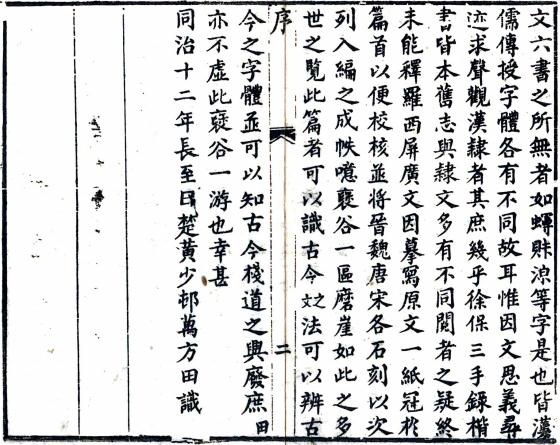 文六書之所無者如蟳䀼涼等字是也皆漢
儒傳授字體各有不同故耳惟因文思義尋
迹求聲觀漢隸者其庶幾乎徐保三手錄楷
書皆本舊志與隸文多有不同閱者之疑終
未能釋羅西屏廣文因摹寫原文一紙冠於
篇首以便校核並將晉魏唐宋各石刻以次
列入編之成帙噫襃谷一區磨崖如此之多
世之覽此篇者可以識古今文之法可以辨古
序
二
今之字體並可以知古今棧道之興廢庶田
亦不虛此襃谷一游也幸甚
同治十二年長至日楚黃少邨萬方田識